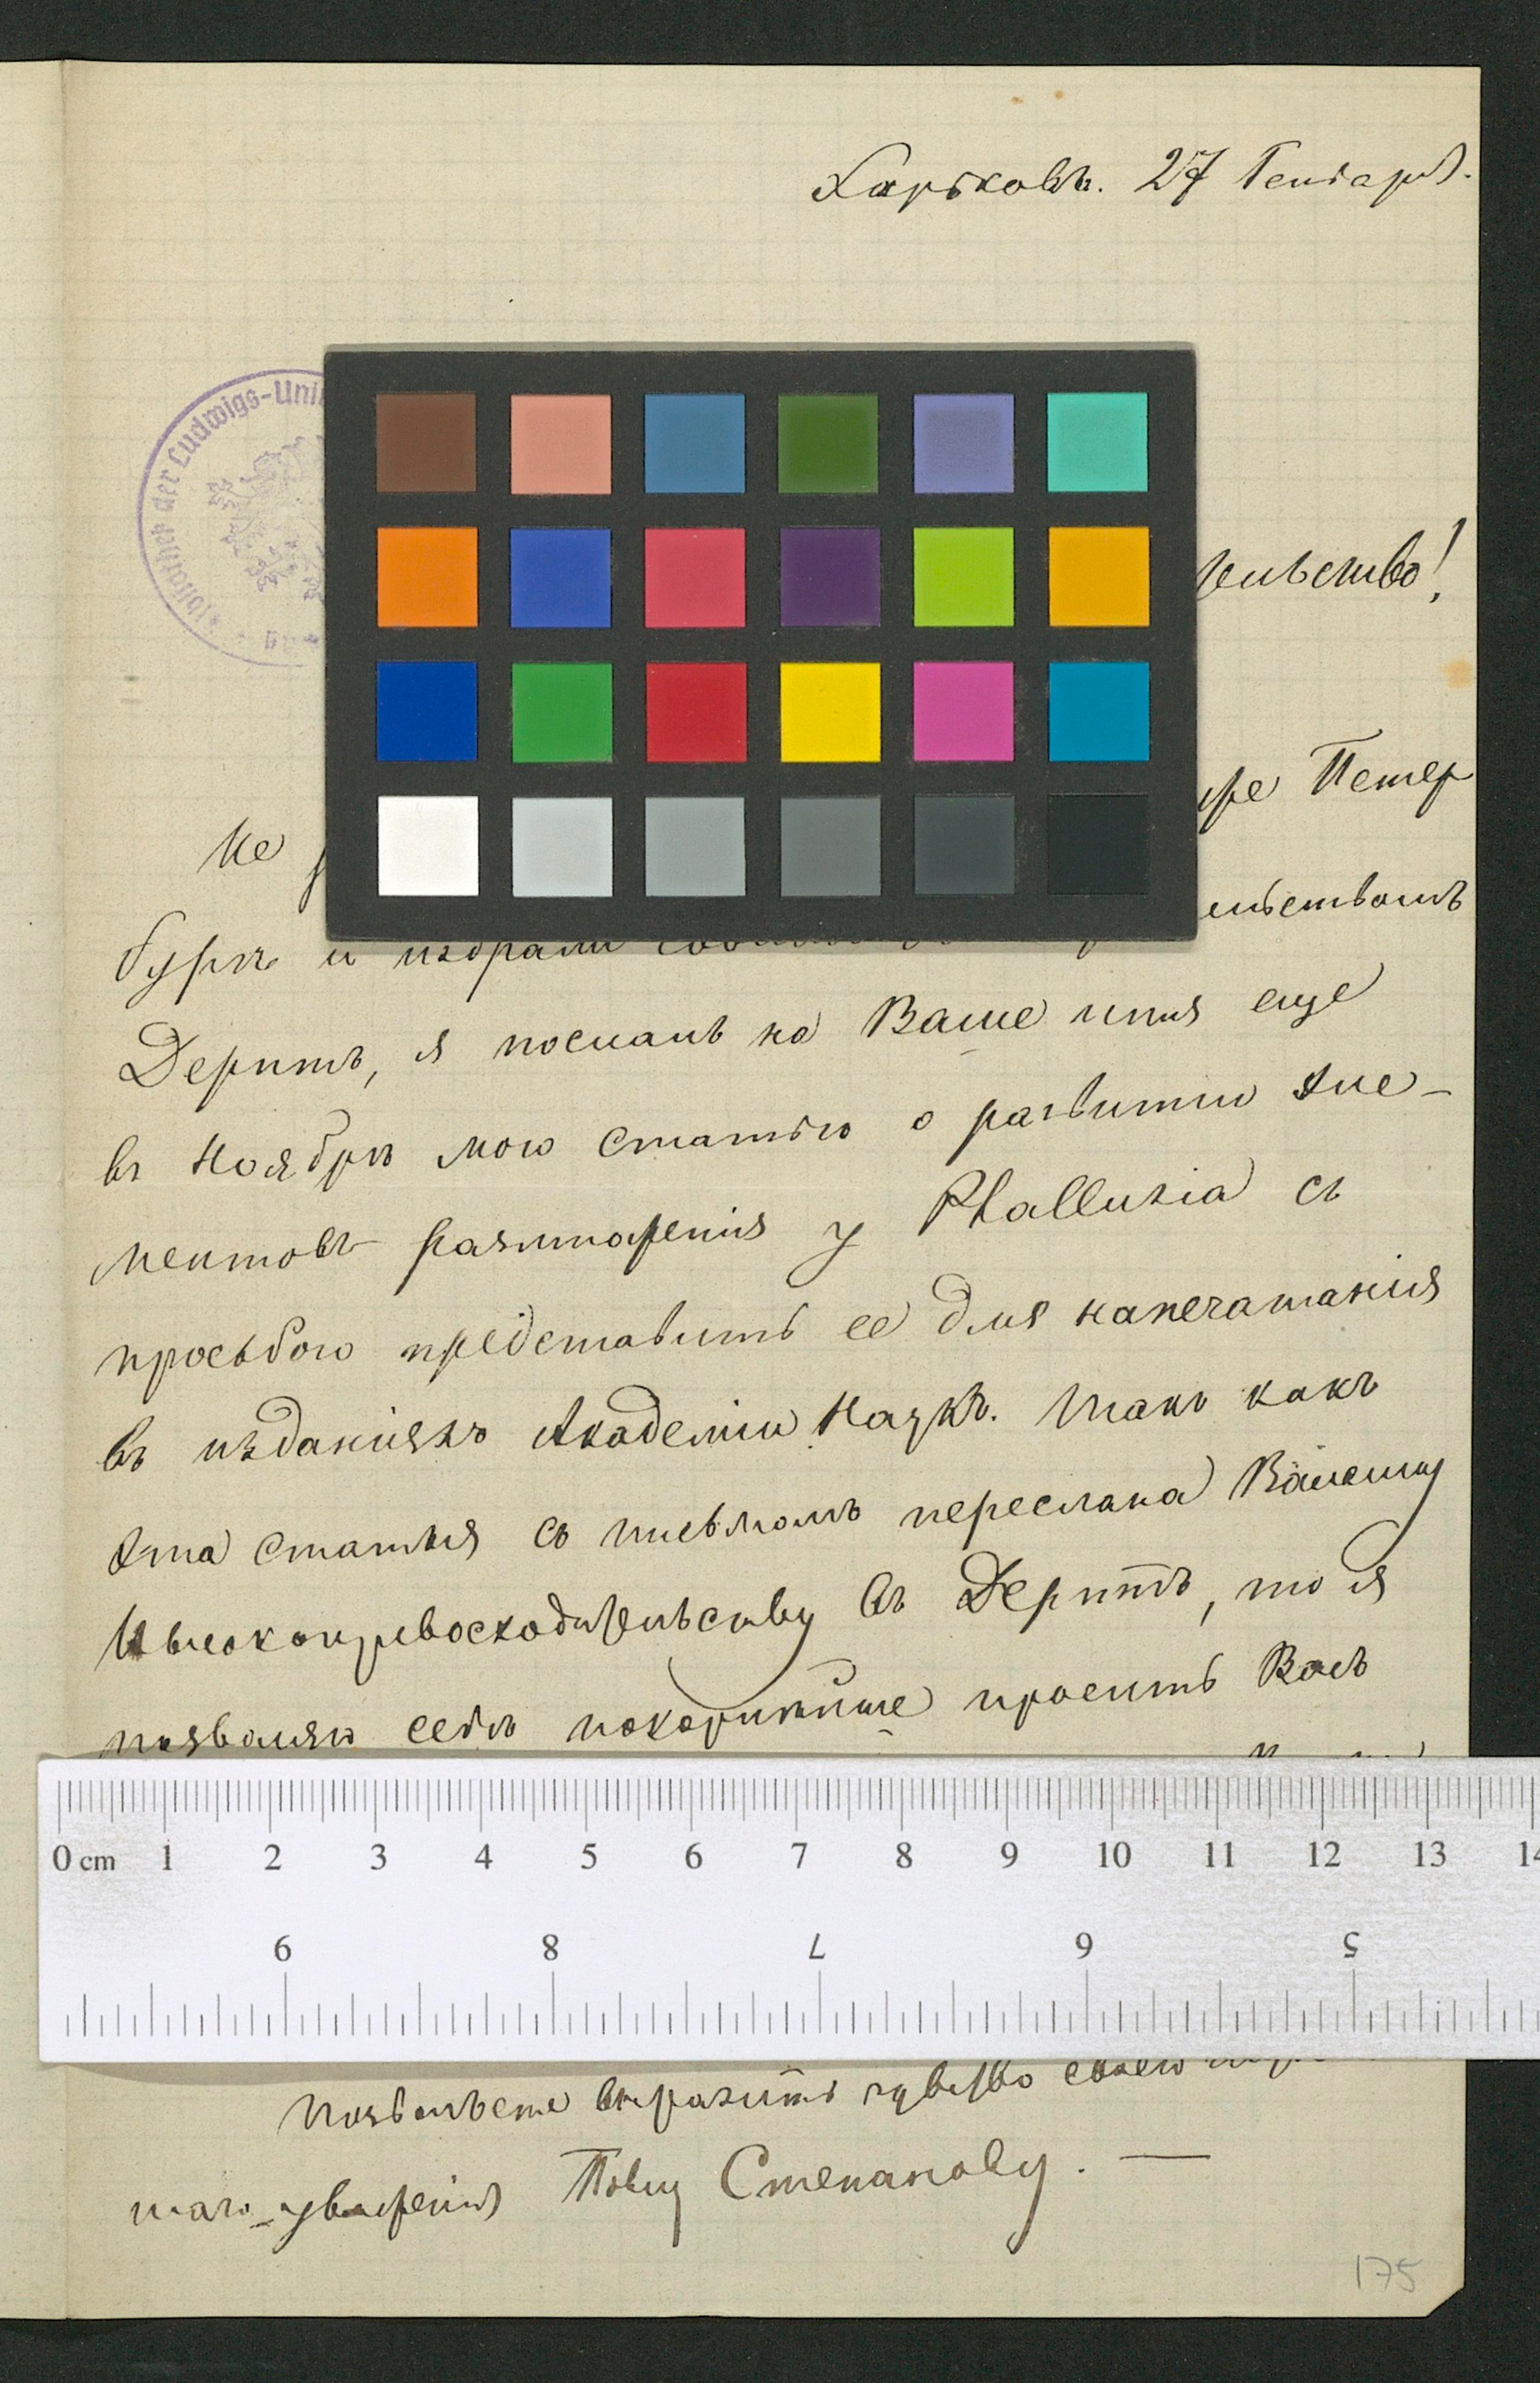 Харьковъ. 27 Генваря.
Bibliothek der Ludwigs-Uni
тельство!
Не
уже Петер
бургъ и избрали
ельствомъ
Дерптъ, я послалъ на Ваше имя еще
въ Ноябрѣ мою статью о развитіи эле-
ментовъ размноженія у Phallusia съ
просьбою представить ее для напечатанія
въ изданіяхъ Академіи Наукъ. Такъ какъ
эта статья съ письмомъ переслана Вашему
Высокопревосходительству въ Дерптъ, то я
позволяю себѣ покорнѣйше просить Васъ
0 cm 1 2 3 4 5 6 7 8 9 10 11 12 13 14
9 8 7 6 5
Позвольте выразить чувство своего
шаго уваженія Степанову. —
175